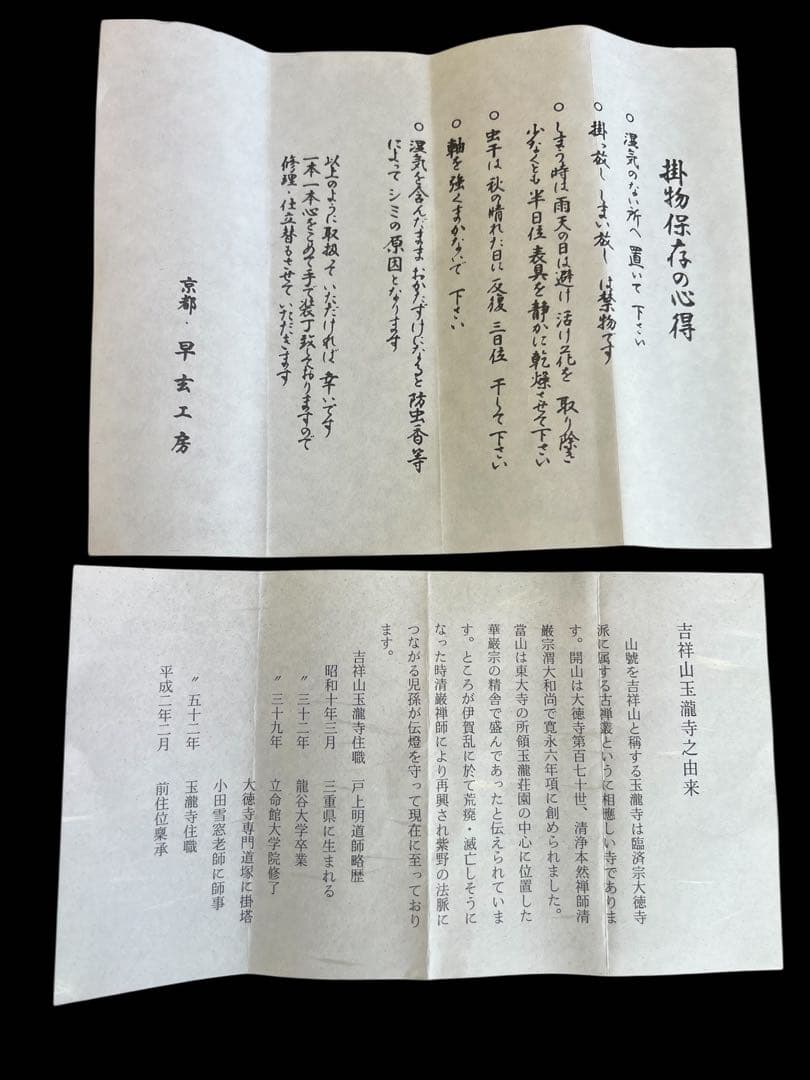 掛物保存の心得
○ 湿気のない所へ 置いて 下さい
○ 掛っ放し しまい放し は禁物です
○ しまう時は 雨天の日は避け 活け花を 取り除き
少なくとも 半日位 表具を 静かに 乾燥させて下さい
○ 虫干は 秋の晴れた日に 反復 三日位 干して 下さい
○ 軸を 強くまかないで 下さい
○ 湿気を含んだまま おかたずけになると 防虫香等
によって シミの原因となります
以上のように 取扱って いただければ 幸いです
一本一本心をこめて手で装丁致しておりますので
修理・仕立替もさせて いただきます
京都・早玄工房
吉祥山玉瀧寺之由来
山號を吉祥山と稱する玉瀧寺は臨済宗大徳寺
派に属する古禅叢というに相應しい寺でありま
す。開山は大徳寺第百七十世、清浄本然禅師清
巌宗渭大和尚で寛永六年項に創められました。
當山は東大寺の所領玉瀧荘園の中心に位置した
華巌宗の精舎で盛んであったと伝えられていま
す。ところが伊賀乱に於て荒廃・滅亡しそうに
なった時清巌禅師により再興され紫野の法脈に
つながる児孫が伝燈を守って現在に至っており
ます。
吉祥山玉瀧寺住職 戸上明道師略歴
昭和十年三月 三重県に生まれる
〃 三十二年 龍谷大学卒業
〃 三十九年 立命館大学院修了
大徳寺専門道塚に掛塔
小田雪窓老師に師事
〃 五十二年 玉瀧寺住職
平成二年二月 前住位稟承